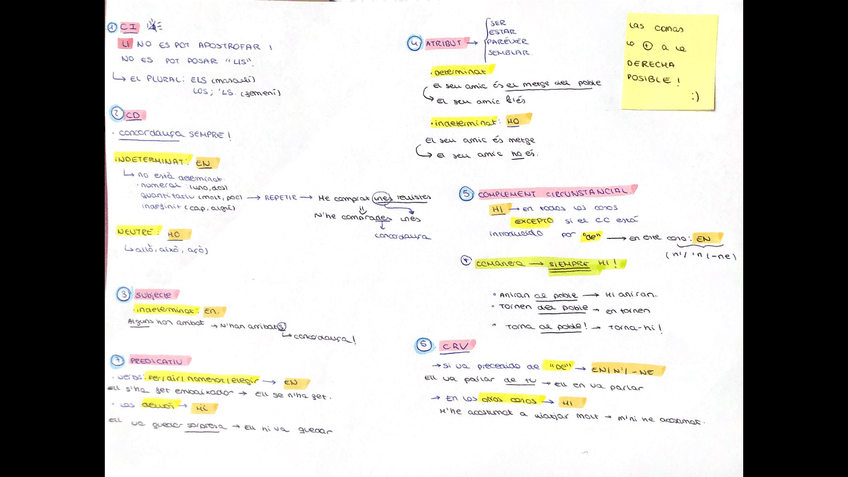 1 CI
LI NO ES POT APOSTROFAR!
NO ES POT POSAR "LIS".
↳ EL PLURAL: ELS (masculí)
LOS; 'LS. (femení)
2 CD
· concordança SEMPRE!
INDETERMINAT: EN
↳ no està determinat
· numeral (un, dos)
quantitatiu (molt, poc) → REPETIR → He comprat unes revistes
indefinit (cap, algú)
N'he comprades unes
concordança
NEUTRE: HO
↳ allò, això, açò)
3 Subjecte
· indeterminat: en.
Alguns han arribat → N'han arribats
↳ concordança!
7 PREDICATIU
· VERBS: Fer/dir/nomenar/elegir → EN
Ell s'ha fet embaixador → Ell se n'ha fet.
· Las demás → HI
Ell va quedar sorprosa → Ell hi va quedar
4 ATRIBUT →
SER
ESTAR
PARÉIXER
SEMBLAR
· Determinat
El seu amic és el metge del poble
El seu amic l'és
· indeterminat: HO
El seu amic és metge
El seu amic ho és.
LAS COMAS
LO + A LA
DERECHA
POSIBLE!
:)
5 COMPLEMENT CIRCUNSTANCIAL
HI → en todos los casos
EXCEPTO si el CC está
introducido por "de" → en este caso: EN
(n'/'n/-ne)
* CCMANERA → SIEMPRE HI!
· Aniran al poble → Hi aniran.
· Tornen del poble → en tornen
· Torna al poble! → Torna-hi!
6 CRV
→ Si va precedido de "de" → EN/N'/-NE
Ell va parlar de tu → ell en va parlar
→ En los otros casos → HI
M'he acostumat a viatjar molt → m'hi he acostumat.